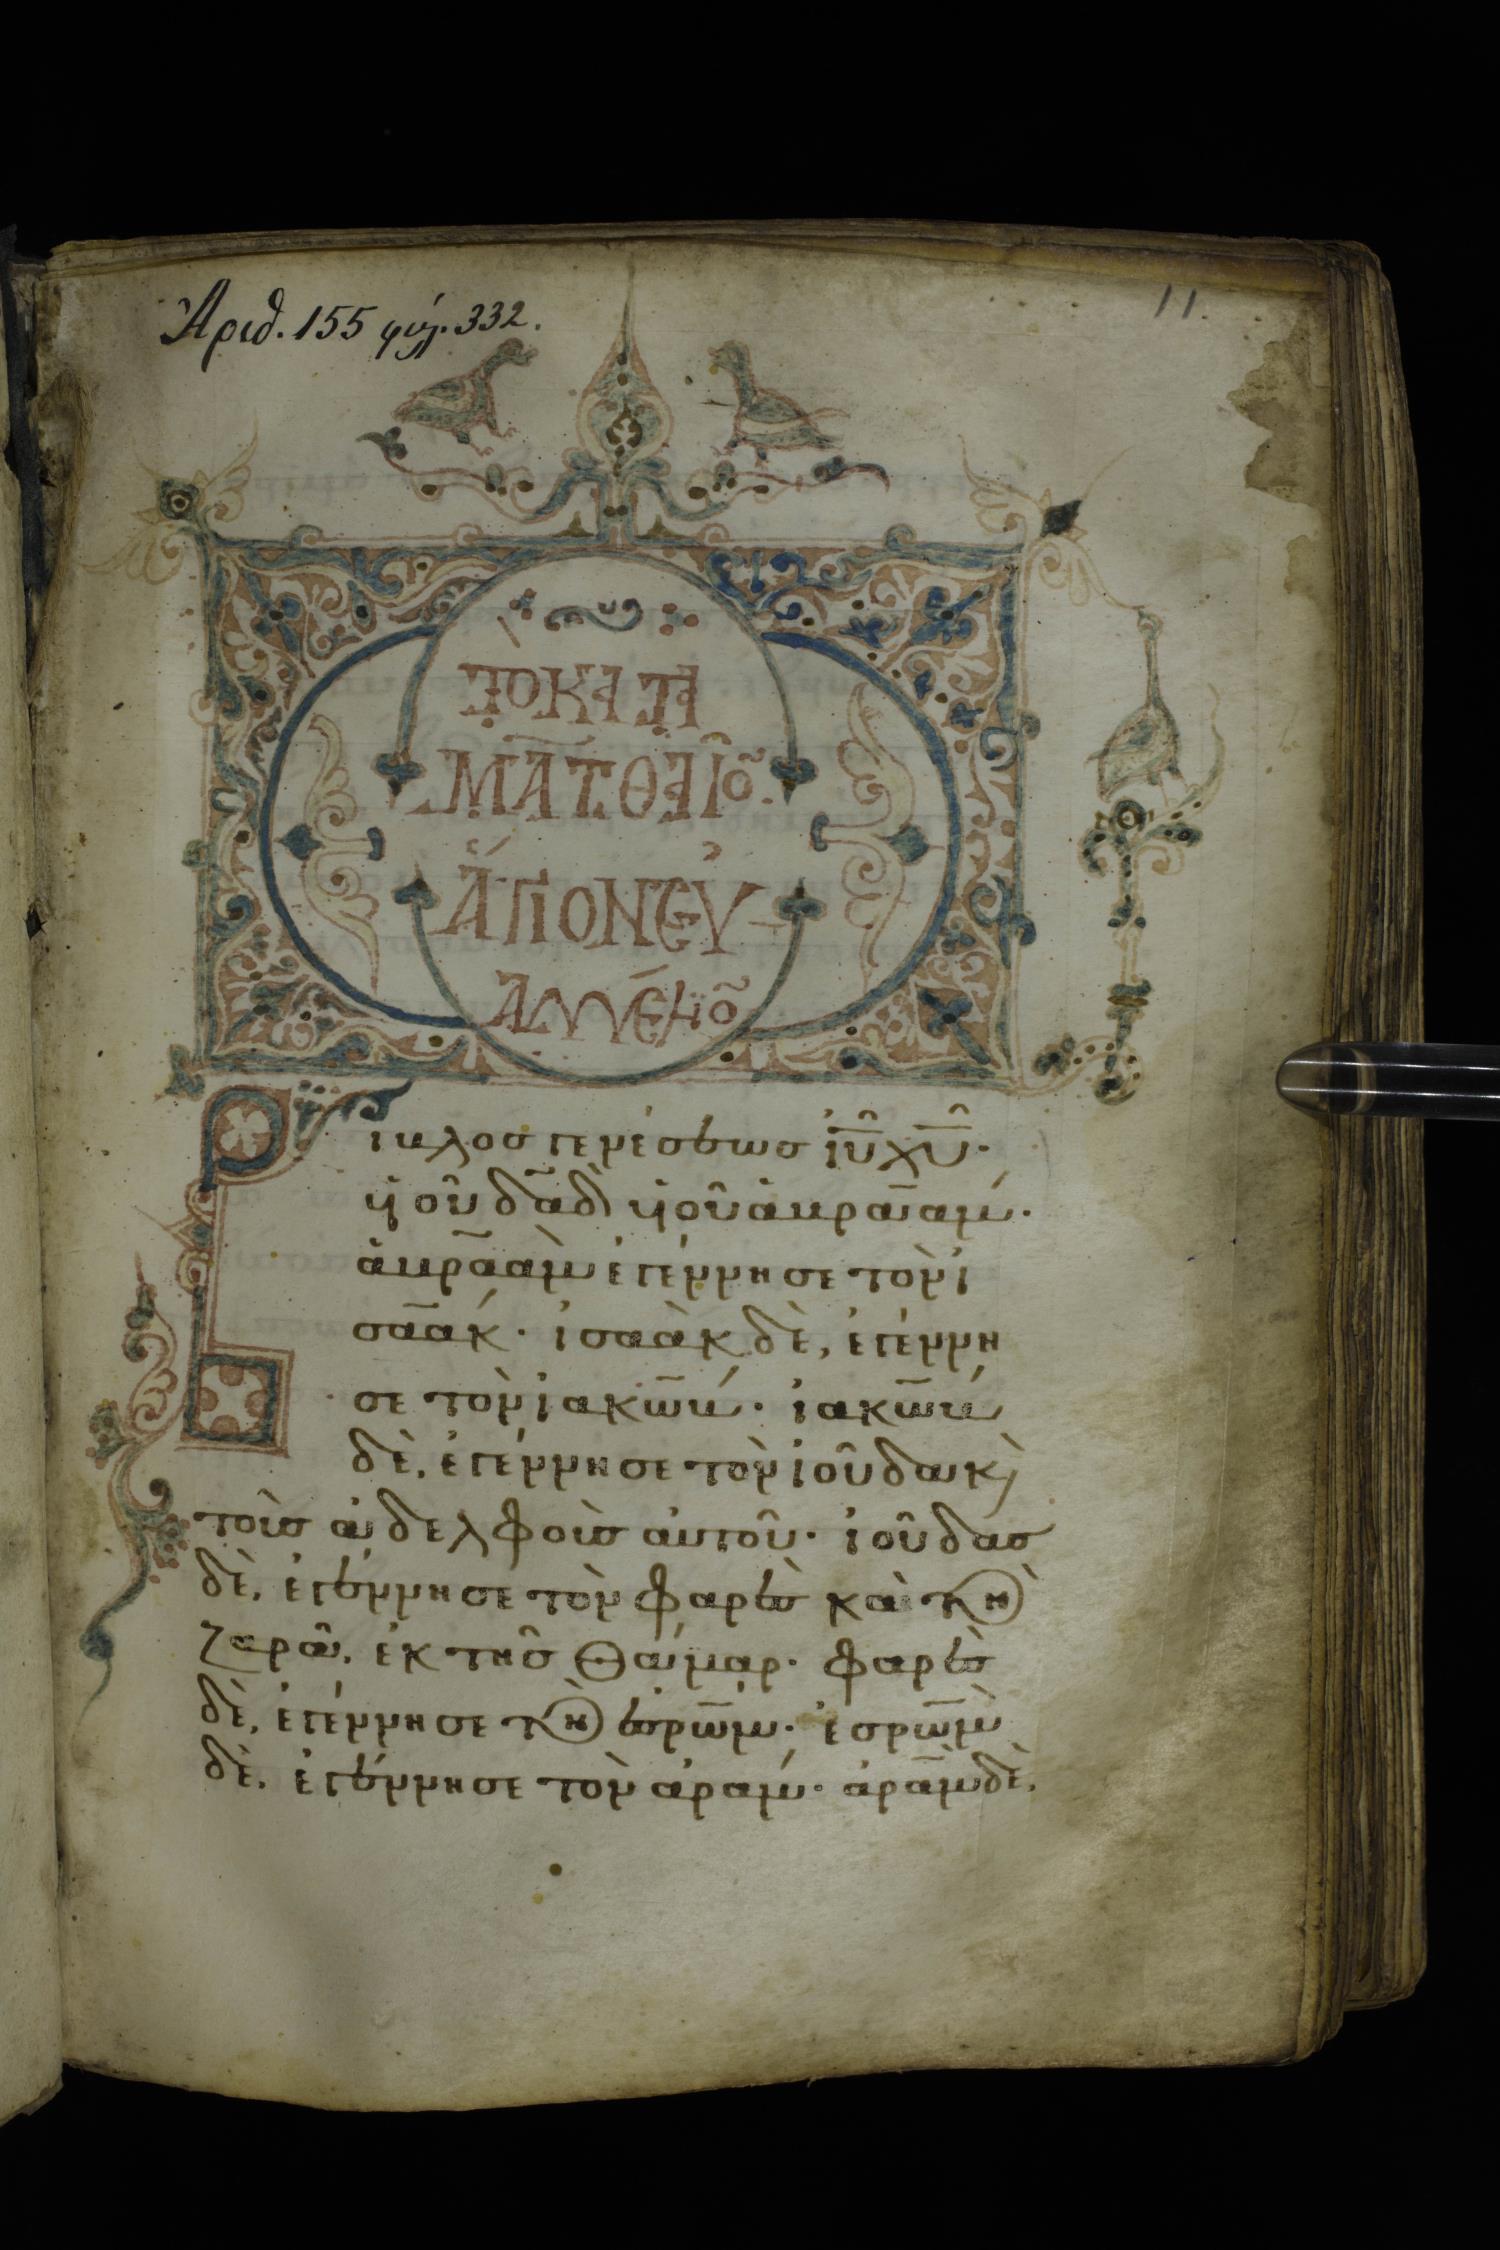 Ἀριθ. 155 φύλ. 332.
11.
ΤΟ ΚΑΤΑ
ΜΑΤΘΑΙΟ̃
ἍΓΙΟΝ ΕΥ̓
ΑΓΓΈΛΙΟ̃
Βίβλος γενέσεως ἰῦ χῦ·
ὑοῦ δα̅δ ὑοῦ ἀβραάμ·
ἀβραὰμ ἐγέννησε τὸν ἰ
σαάκ· ἰσαὰκ δὲ, ἐγέννη
σε τὸν ἰακώβ· ἰακώβ
δὲ, ἐγέννησε τὸν ἰούδαν κ̀
τοὺσ ἀδελφοὺσ αὐτοῦ· ἰούδασ
δὲ, ἐγέννησε τὸν φαρὲσ καὶ τὸν
ζαρᾶ, ἐκ τῆσ Θάμαρ· φαρὲσ
δὲ, ἐγέννησε τὸν ἐσρώμ· ἐσρὼμ
δὲ, ἐγέννησε τὸν ἀράμ· ἀρὰμ δὲ,